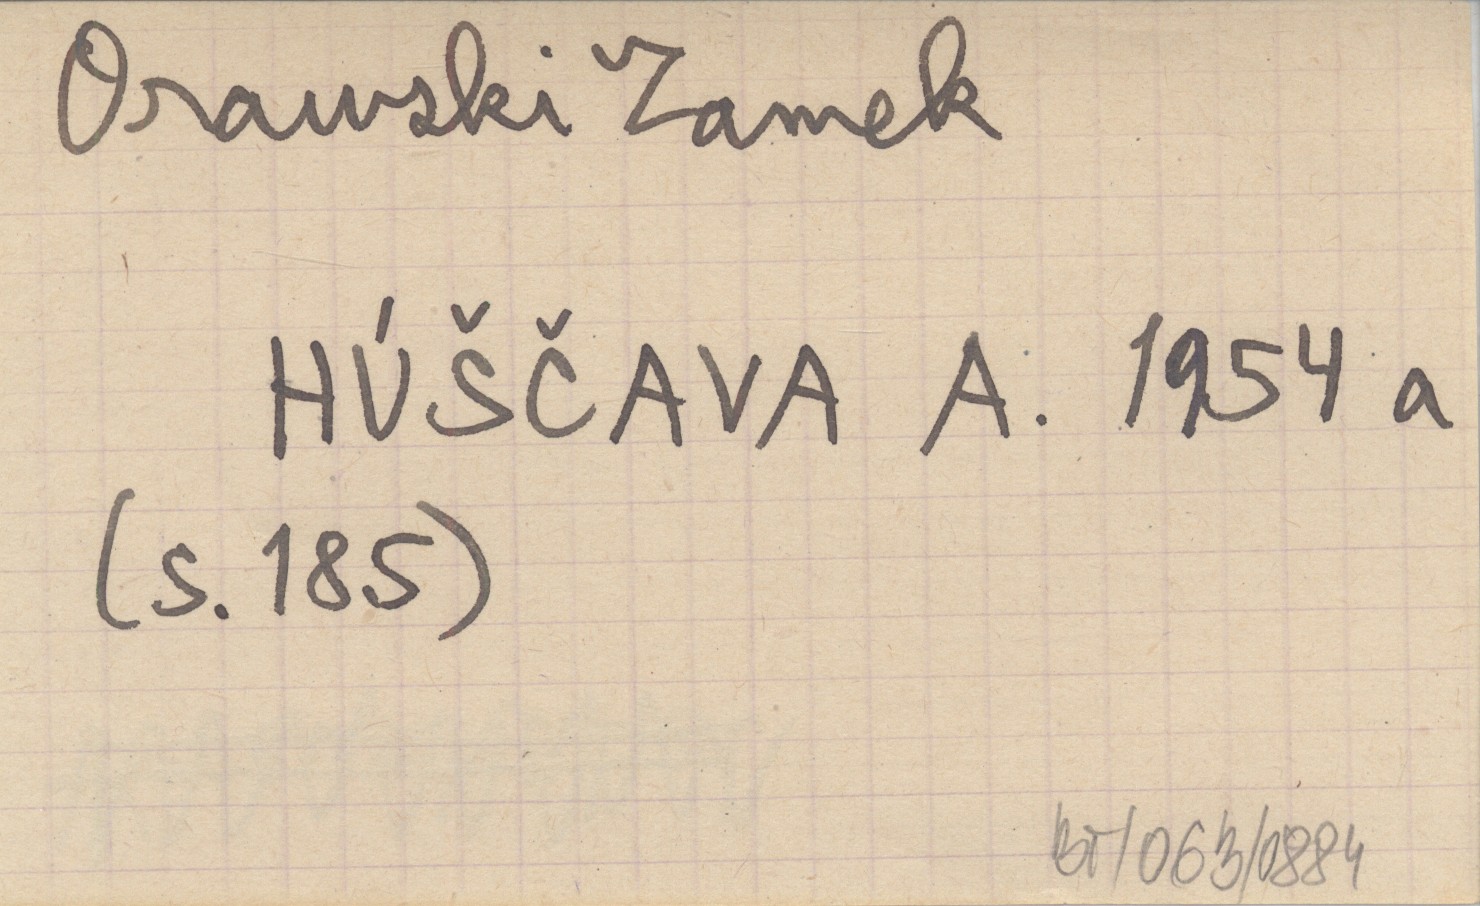 Orawski Zamek
HÚŠČAVA A. 1954 a
(s. 185)
BT/063/0884